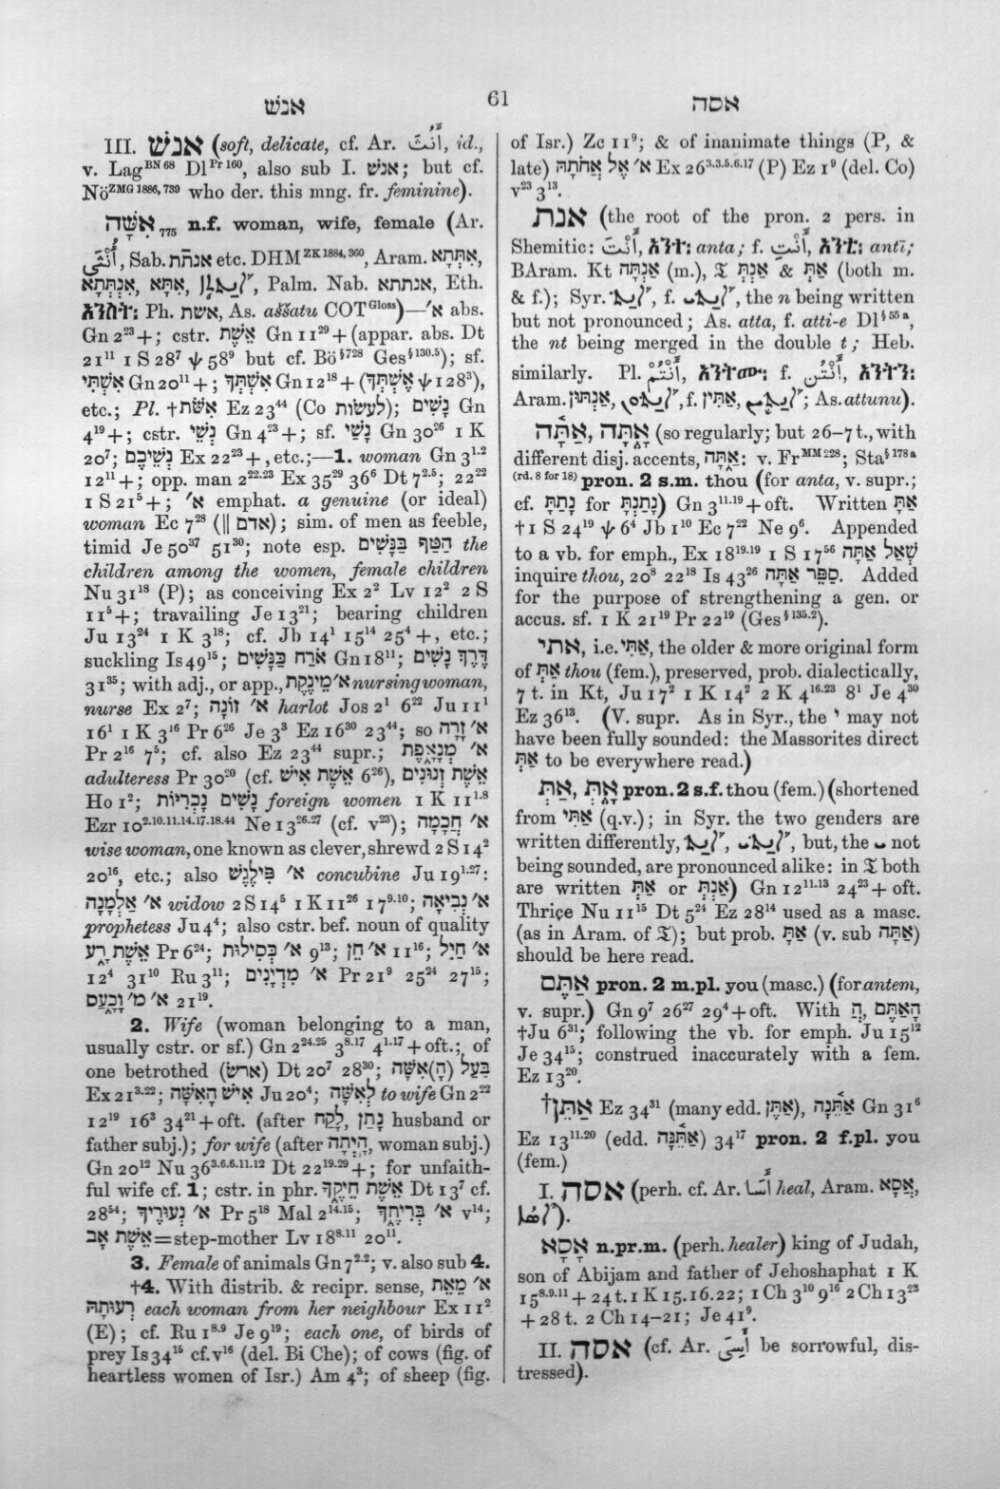 אנשׁ
61
אסה
III. אנשׁ (soft, delicate, cf. Ar. أَنُثَ, id.,
v. Lag BN 68 Dl Pr 160, also sub I. אנשׁ; but cf.
Nö ZMG 1886, 739 who der. this mng. fr. feminine).
אִשָּׁה 775 n.f. woman, wife, female (Ar.
أُنْثَى, Sab. אנתֿת etc. DHM ZK 1884, 360, Aram. אִתְּתָא,
אִנְתְּתָא, אִתָּא, Palm. Nab. אנתתא, Eth.
አንስት፡ Ph. אשת, As. aššatu COT Gloss)—א׳ abs.
Gn 2²³ +; cstr. אֵשֶׁת Gn 11²⁹ + (appar. abs. Dt
21¹¹ 1 S 28⁷ ψ 58⁹ but cf. Bö §728 Ges §130.5); sf.
אִשְׁתִּי Gn 20¹¹ +; אִשְׁתְּךָ Gn 12¹⁸ + (אֶשְׁתְּךָ ψ 128³),
etc.; Pl. †אִשֹּׁת Ez 23⁴⁴ (Co לעשׂות); נָשִׁים Gn
4¹⁹ +; cstr. נְשֵׁי Gn 4²³ +; sf. נָשַׁי Gn 30²⁶ 1 K
20⁷; נְשֵׁיכֶם Ex 22²³ +, etc.;—1. woman Gn 3¹·²
12¹¹ +; opp. man 2²²·²³ Ex 35²⁹ 36⁶ Dt 7²·⁵; 22²²
1 S 21⁵ +; א׳ emphat. a genuine (or ideal)
woman Ec 7²⁸ (|| אדם); sim. of men as feeble,
timid Je 50³⁷ 51³⁰; note esp. הַטַּף בַּנָּשִׁים the
children among the women, female children
Nu 31¹⁸ (P); as conceiving Ex 2² Lv 12² 2 S
11⁵ +; travailing Je 13²¹; bearing children
Ju 13²⁴ 1 K 3¹⁸; cf. Jb 14¹ 15¹⁴ 25⁴ +, etc.;
suckling Is 49¹⁵; אֹרַח כַּנָּשִׁים Gn 18¹¹; דֶּרֶךְ נָשִׁים
31³⁵; with adj., or app., א׳ מֵינֶקֶת nursing woman,
nurse Ex 2⁷; א׳ זוֹנָה harlot Jos 2¹ 6²² Ju 11¹
16¹ 1 K 3¹⁶ Pr 6²⁶ Je 3³ Ez 16³⁰ 23⁴⁴; so א׳ זָרָה
Pr 2¹⁶ 7⁵; cf. also Ez 23⁴⁴ supr.; א׳ מְנָאֶפֶת
adulteress Pr 30²⁰ (cf. אֵשֶׁת אִישׁ 6²⁶), אֵשֶׁת זְנוּנִים
Ho 1²; נָשִׁים נָכְרִיּוֹת foreign women 1 K 11¹·⁸
Ezr 10²·¹⁰·¹¹·¹⁴·¹⁷·¹⁸·⁴⁴ Ne 13²⁶·²⁷ (cf. v²³); א׳ חֲכָמָה
wise woman, one known as clever, shrewd 2 S 14²
20¹⁶, etc.; also א׳ פִּילֶגֶשׁ concubine Ju 19¹·²⁷:
א׳ אַלְמָנָה widow 2 S 14⁵ 1 K 11²⁶ 17⁹·¹⁰; א׳ נְבִיאָה
prophetess Ju 4⁴; also cstr. bef. noun of quality
אֵשֶׁת רָע Pr 6²⁴; א׳ כְּסִילוּת 9¹³; א׳ חֵן 11¹⁶; א׳ חַיִל
12⁴ 31¹⁰ Ru 3¹¹; א׳ מִדְיָנִים Pr 21⁹ 25²⁴ 27¹⁵;
א׳ מ׳ וָכָעַס 21¹⁹.
2. Wife (woman belonging to a man,
usually cstr. or sf.) Gn 2²⁴·²⁵ 3⁸·¹⁷ 4¹·¹⁷ + oft.; of
one betrothed (ארשׂ) Dt 20⁷ 28³⁰; בַּעַל (הָ)אִשָּׁה
Ex 21³·²²; אִישׁ הָאִשָּׁה Ju 20⁴; לְאִשָּׁה to wife Gn 2²²
12¹⁹ 16³ 34²¹ + oft. (after נָתַן, לָקַח husband or
father subj.); for wife (after הָיְתָה, woman subj.)
Gn 20¹² Nu 36³·⁶·⁶·¹¹·¹² Dt 22¹⁹·²⁹ +; for unfaith-
ful wife cf. 1; cstr. in phr. אֵשֶׁת חֵיקֶךָ Dt 13⁷ cf.
28⁵⁴; א׳ נְעוּרֶיךָ Pr 5¹⁸ Mal 2¹⁴·¹⁵; א׳ בְּרִיתֶךָ v¹⁴;
אֵשֶׁת אָב = step-mother Lv 18⁸·¹¹ 20¹¹.
3. Female of animals Gn 7²·²; v. also sub 4.
†4. With distrib. & recipr. sense, א׳ מֵאֵת
רְעוּתָהּ each woman from her neighbour Ex 11²
(E); cf. Ru 1⁸·⁹ Je 9¹⁹; each one, of birds of
prey Is 34¹⁵ cf. v¹⁶ (del. Bi Che); of cows (fig. of
heartless women of Isr.) Am 4³; of sheep (fig.
of Isr.) Zc 11⁹; & of inanimate things (P, &
late) א׳ אֶל אֲחֹתָהּ Ex 26³·³·⁵·⁶·¹⁷ (P) Ez 1⁹ (del. Co)
v²³ 3¹³.
אנת (the root of the pron. 2 pers. in
Shemitic: أَنْتَ, አንተ፡ anta; f. أَنْتِ, አንቲ፡ antī;
BAram. Kt אַנְתָּה (m.), 𝔗 אַנְתְּ & אַתְּ (both m.
& f.); Syr. ܐܰܢ̱ܬ, f. ܐܰܢ̱ܬܝ, the n being written
but not pronounced; As. atta, f. atti-e Dl §55 a,
the nt being merged in the double t; Heb.
similarly. Pl. أَنْتُمْ, አንትሙ፡ f. أَنْتُنَّ, አንትን፡
Aram. אַנְתּוּן, ܐܰܢ̱ܬܘܢ, f. אַתִּין, ܐܰܢ̱ܬܝܢ; As. attunu).
אַתָּה, אָתָּה (so regularly; but 26–7 t., with
different disj. accents, אַתָּה: v. Fr MM 228; Sta §178 a
(rd. 8 for 18) pron. 2 s.m. thou (for anta, v. supr.;
cf. נָתַתָּ for נָתַנְתָּ) Gn 3¹¹·¹⁹ + oft. Written אַתָּ
†1 S 24¹⁹ ψ 6⁴ Jb 1¹⁰ Ec 7²² Ne 9⁶. Appended
to a vb. for emph., Ex 18¹⁹·¹⁹ 1 S 17⁵⁶ שְׁאַל אַתָּה
inquire thou, 20⁸ 22¹⁸ Is 43²⁶ סַפֵּר אַתָּה. Added
for the purpose of strengthening a gen. or
accus. sf. 1 K 21¹⁹ Pr 22¹⁹ (Ges §135.2).
אתי, i.e. אַתִּי, the older & more original form
of אַתְּ thou (fem.), preserved, prob. dialectically,
7 t. in Kt, Ju 17² 1 K 14² 2 K 4¹⁶·²³ 8¹ Je 4³⁰
Ez 36¹³. (V. supr. As in Syr., the י may not
have been fully sounded: the Massorites direct
אַתְּ to be everywhere read.)
אַתְּ, אָתְּ pron. 2 s.f. thou (fem.) (shortened
from אַתִּי (q.v.); in Syr. the two genders are
written differently, ܐܰܢ̱ܬ, ܐܰܢ̱ܬܝ, but, the ܝ not
being sounded, are pronounced alike: in 𝔗 both
are written אַתְּ or אַנְתְּ) Gn 12¹¹·¹³ 24²³ + oft.
Thriçe Nu 11¹⁵ Dt 5²⁴ Ez 28¹⁴ used as a masc.
(as in Aram. of 𝔗); but prob. אַתָּ (v. sub אַתָּה)
should be here read.
אַתֶּם pron. 2 m.pl. you (masc.) (for antem,
v. supr.) Gn 9⁷ 26²⁷ 29⁴ + oft. With הַ, הַאַתֶּם
†Ju 6³¹; following the vb. for emph. Ju 15¹²
Je 34¹⁵; construed inaccurately with a fem.
Ez 13²⁰.
†אַתֵּן Ez 34³¹ (many edd. אַתֶּן), אַתֵּנָה Gn 31⁶
Ez 13¹¹·²⁰ (edd. אַתֵּנָּה) 34¹⁷ pron. 2 f.pl. you
(fem.)
I. אסה (perh. cf. Ar. أَسَا heal, Aram. אֲסָא,
ܐܣܐ).
אָסָא n.pr.m. (perh. healer) king of Judah,
son of Abijam and father of Jehoshaphat 1 K
15⁸·⁹·¹¹ + 24 t. 1 K 15.16.22; 1 Ch 3¹⁰ 9¹⁶ 2 Ch 13²³
+ 28 t. 2 Ch 14–21; Je 41⁹.
II. אסה (cf. Ar. أَسِىَ be sorrowful, dis-
tressed).